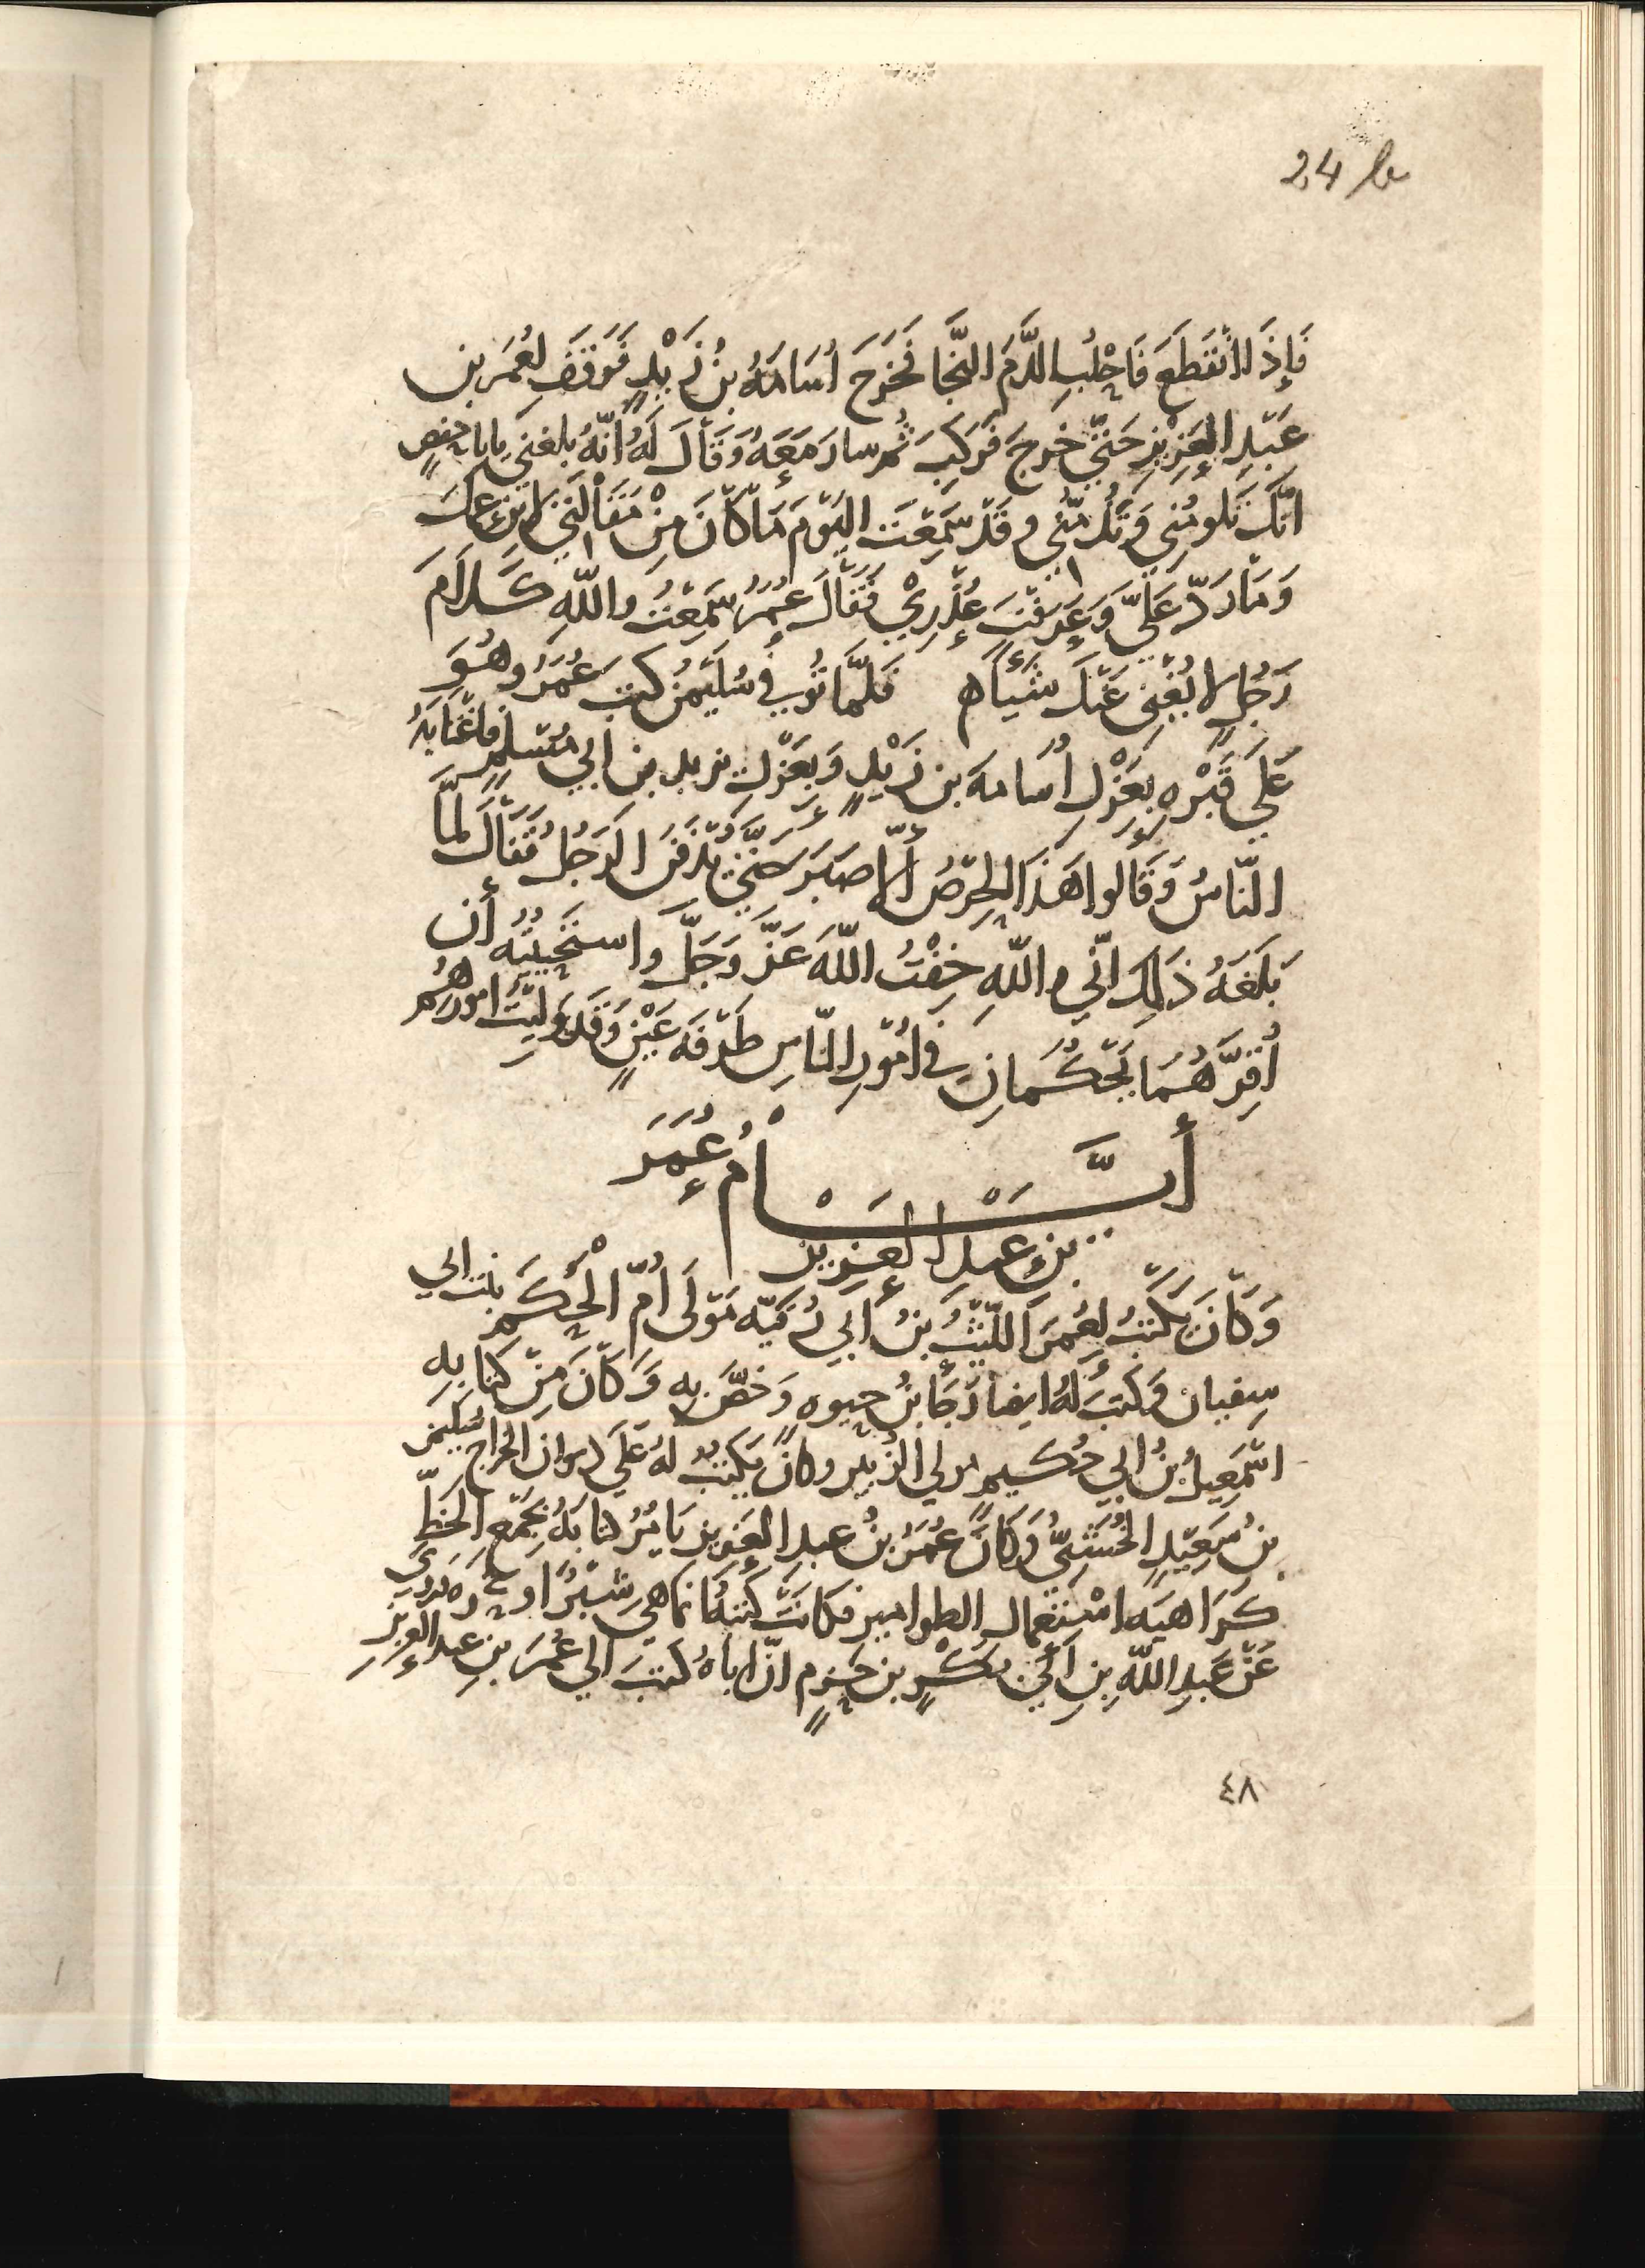 24 b
فَإِذَا انْقَطَعَ فَاحْلُبِ الدَّمَ النَّجَا فَخَرَجَ اُسَامَةُ بنُ زَيْدٍ فَوَقَفَ لِعُمَرَ بنِ
عَبْدِ العَزِيْزِ حَتّى خَرَجَ فَرَكِبَ ثُمّ سارَ مَعَهُ وَقَالَ لَهُ انّهُ بلغنى يابا حفصٍ
انّكَ تَلومُنِي وَتَذُمُّنِي وقَدْ سَمِعْتَ اليَوْمَ مَا كَانَ مِنْ مَقَالَتِي لابْنِ عَمِّكَ
وَمَا رَدَّ عَلَيَّ وَعَرَفْتَ عُذْرِيْ فَقَالَ عُمَرُ سَمِعْتُ واللّهِ كَلَامَ
رَجُلٍ لا يُغْنِى عَنْكَ شَيْأً ه فَلَمَّا تُوُفِّي سُلَيْمٰنُ كتبَ عُمَرُ وَهُوَ
عَلَى قَبْرِهِ بِعَزْلِ اُسَامَةَ بنِ زَيْدٍ وَبِعَزْلِ يزيد بن ابي مُسْلِمٍ فاغْتَابَهُ
النّاسُ وَقَالُوا هَذَا الحِرْصُ أَلا صَبَرَ حَتّى يُدْفَنَ الرَجُلُ فَقَالَ لَمّا
بَلَغَهُ ذَلِكَ انّي واللّهِ خِفْتُ اللّهَ عَزَّ وَجَلَّ واستَحْيَيْتُهُ أن
أُقِرَّهُمَا يَحْكُمَانِ في اُمُوْرِ النّاسِ طَرْفَةَ عَيْنٍ وَقَد وَلِيْتُ امورَهُم
أَيَّــــــامُ عُمَرَ
بنِ عبدِ العزيز
وَكَانَ يَكْتبُ لِعُمَرَ اللّيْثُ بنُ أبي رُقَيّة مَوْلَى اُمِّ الْحَكَمِ بنت ابي
سفيان وكتبَ لَهُ ايضا رَجَأُ بنُ حيوه وَخَصَّ بِهِ وَكَانَ مِنْ كتابِهِ
اسْمَعِيلُ بنُ ابي حُكَيم مولى الزُبير وكانَ يَكْتبُ لهُ عَلَى ديوان الخراج سُلَيمٰن
بنُ سَعِيْدٍ الخُشَنِيُّ وَكَانَ عُمَرُ بنُ عبدِ العَزيزِ يَامُرُ كتابَهُ بِجَمْعِ الخَطِّ
كَرَاهيَهَ اسْتِعْمال الطوامير فكَانَتْ كتبُهُ انما هي شِبْرًا او نحوه يروي
عَنْ عَبدِ اللّهِ بنِ أبي بكْرٍ بن حَزمٍ انّ اباهُ كتبَ الي عُمَرَ بنِ عبد العزيز
٤٨